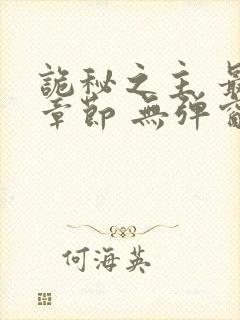 詭秘之主 最
章節 無彈窗
何海英